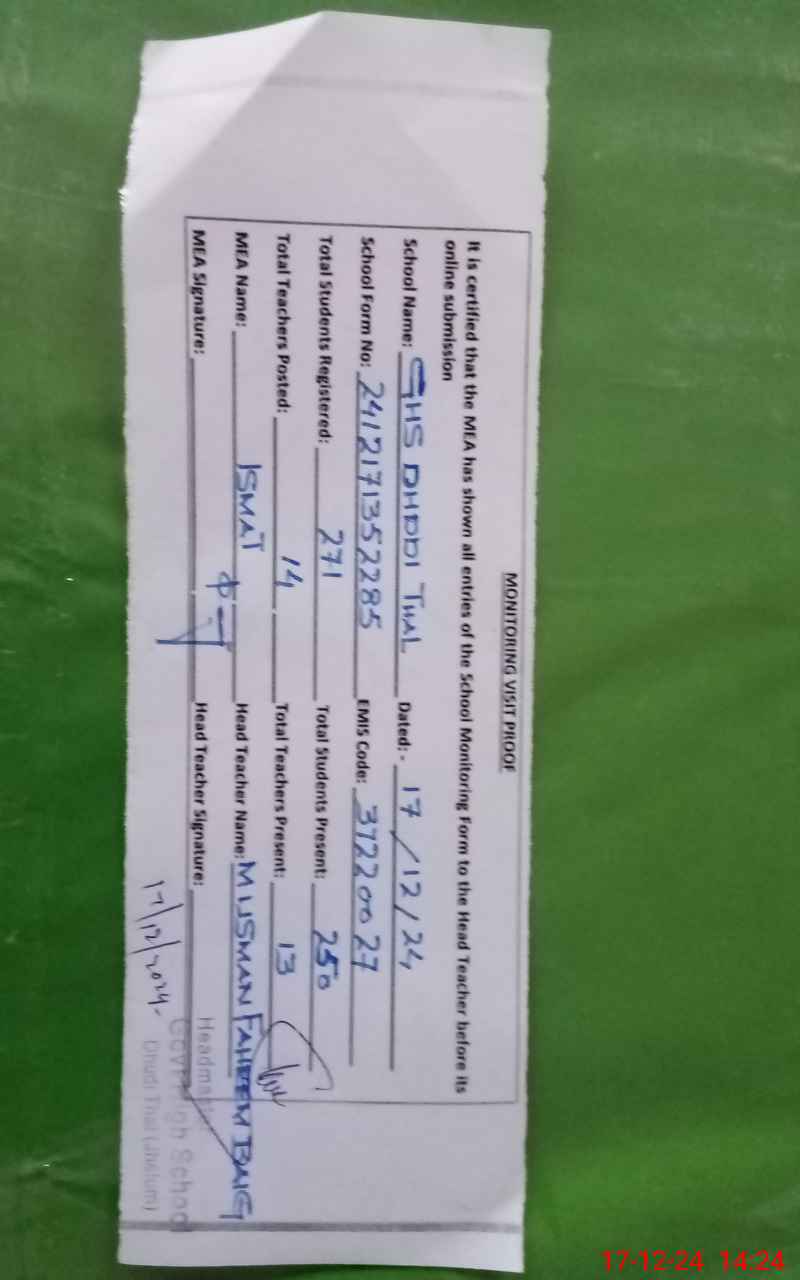 MONITORING VISIT PROOF
It is certified that the MEA has shown all entries of the School Monitoring Form to the Head Teacher before its
online submission
School Name: GHS DHDDI THAL Dated: - 17/12/24
School Form No: 241217135 2285 EMIS Code: 37220027
Total Students Registered: 271 Total Students Present: 250
Total Teachers Posted: 14 Total Teachers Present: 13
MEA Name: ISMAT Head Teacher Name: M USMAN FAHEEM BAIG
MEA Signature: Head Teacher Signature:
17/12/2024-
Headmaster
Govt High School
Dhudi Thal (Jhelum)
17-12-24 14:24